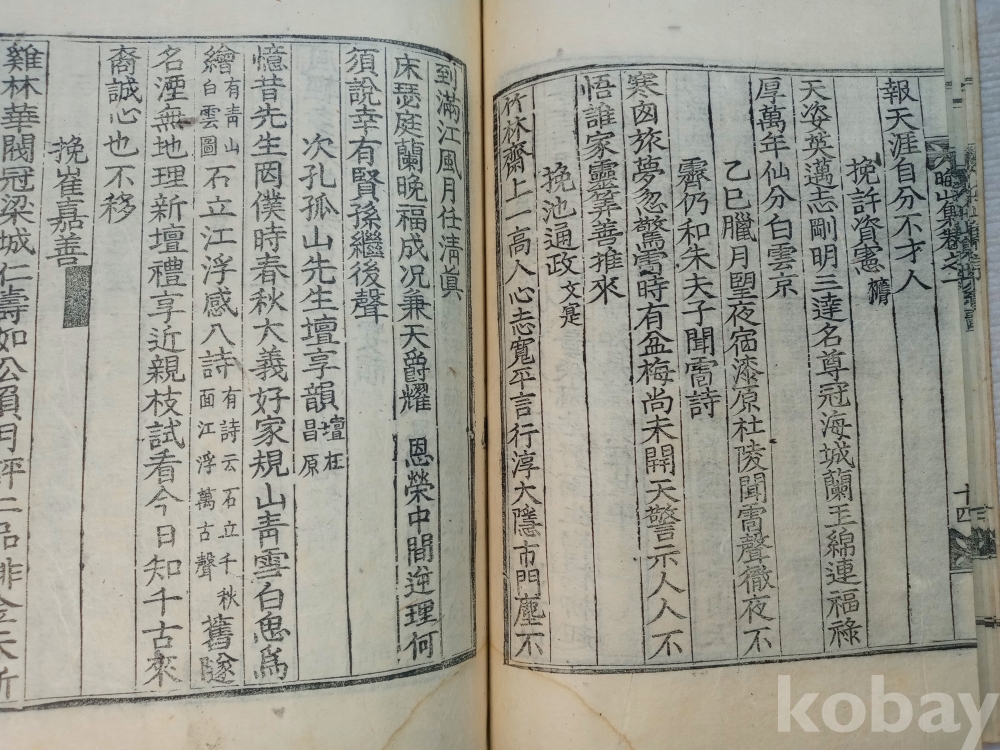 報天涯自分不才人
挽許資憲
天姿英邁志剛明三達名尊冠海城蘭玉綿連福祿
厚萬年仙分白雲京
乙巳臘月望夜宿漆原杜陵聞雷聲徹夜不
霽仍和朱夫子聞雷詩
寒囱旅夢忽驚雷時有盆梅尚未開天警示人人不
悟誰家靈筭善推來
挽池通政 文是
竹林齋上一高人心志寬平言行淳大隱市門塵不
十四
到滿江風月任淸眞
床瑟庭蘭晚福成况兼天爵耀 恩榮中間逆理何
須說幸有賢孫繼後聲
次孔孤山先生壇享韻 壇在昌原
憶昔先生因僕時春秋大義好家規山靑雲白思爲
繪 有靑山白雲圖 石立江浮感入詩 有詩云石立千秋面江浮萬古聲 舊隧
名湮無地理新壇禮享近親枝試看今日知千古來
裔誠心也不移
挽崔嘉善
雞林華閥冠梁城仁壽如公
kobay